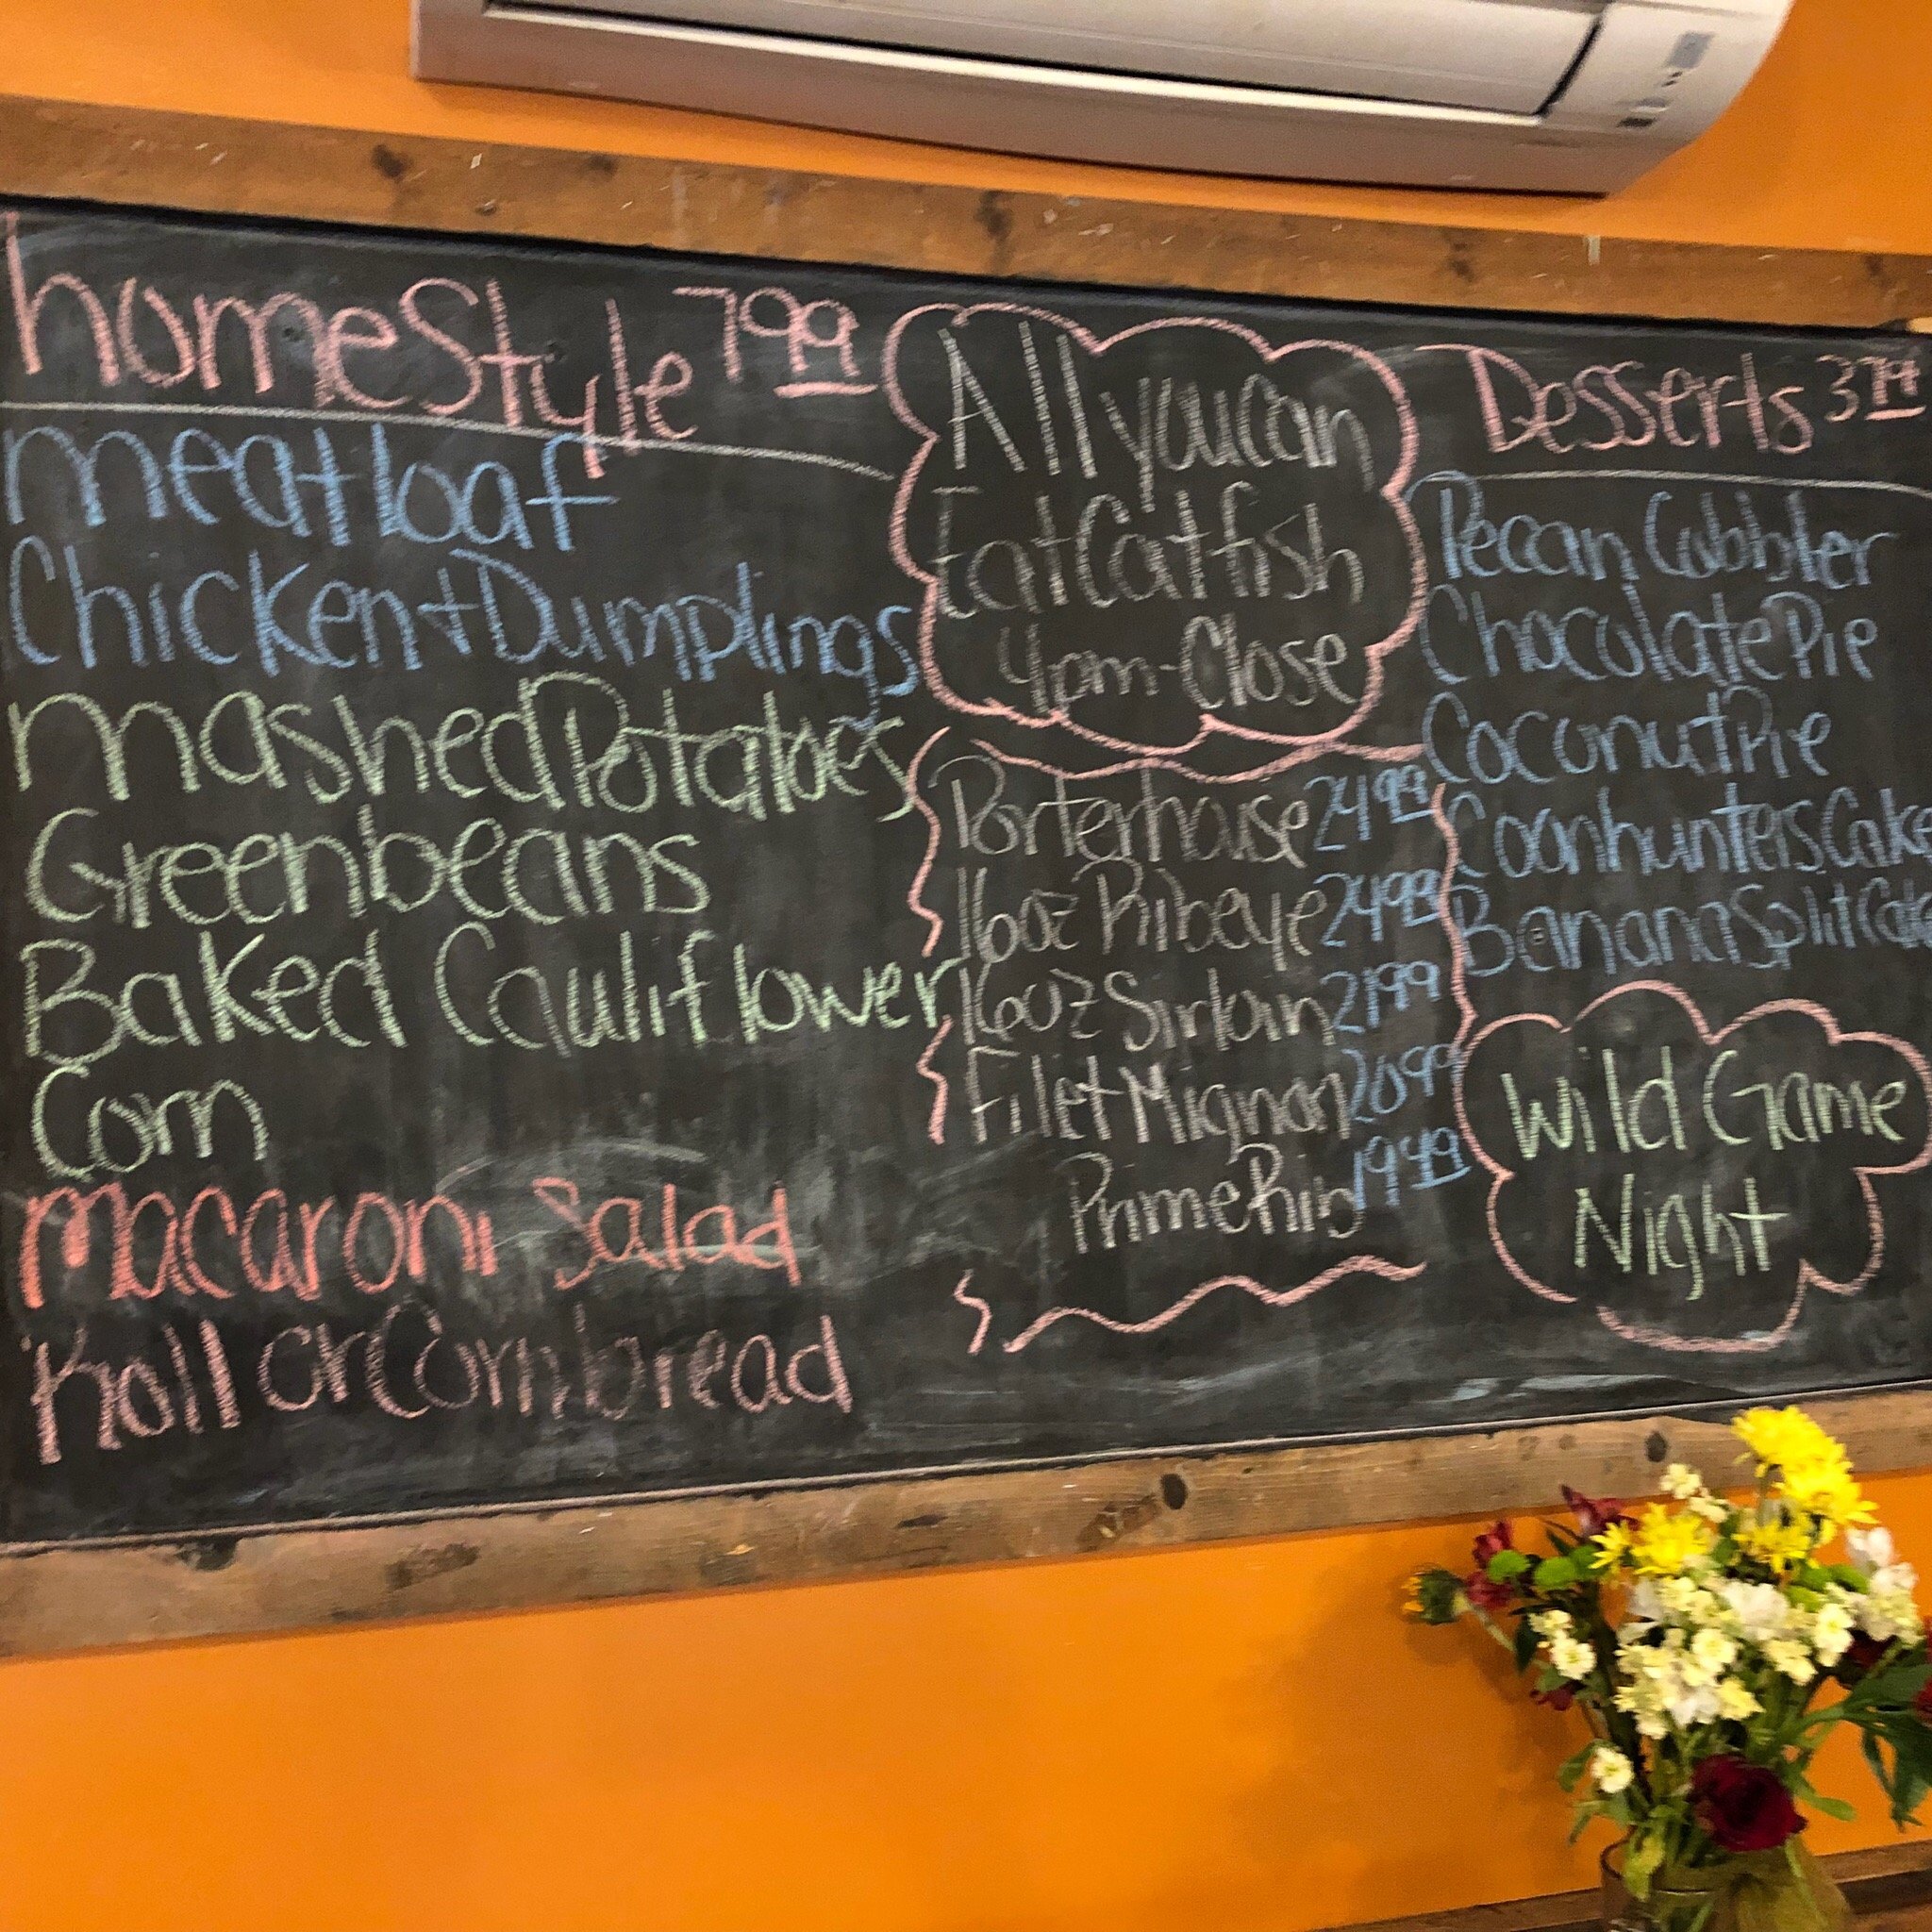 homeStyle 799
meatloaf
Chicken + Dumplings
mashed Potatoes
Greenbeans
Baked Cauliflower
Corn
macaroni Salad
Roll or Cornbread
All you can
Eat Catfish
4pm-Close
Porterhouse 2499
16oz Ribeye 2499
16oz Sirloin 2199
Filet Mignon 2099
Prime Rib 1999
Desserts
Pecan Cobbler
Chocolate Pie
Coconut Pie
Coonhunters Cake
Banana Split Cake
Wild Game
Night